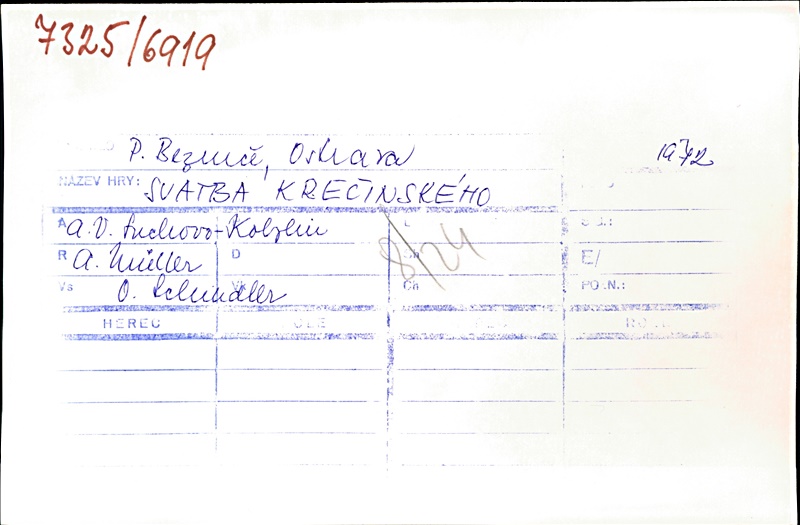 7325/6919
P. Bezruče, Ostrava 1972
NÁZEV HRY: SVATBA KREČINSKÉHO
A A. V. Suchovo-Kobylin L
R A. Müller D 8/24 E/
Vs O. Schindler Vk Ch PO.N.:
HEREC